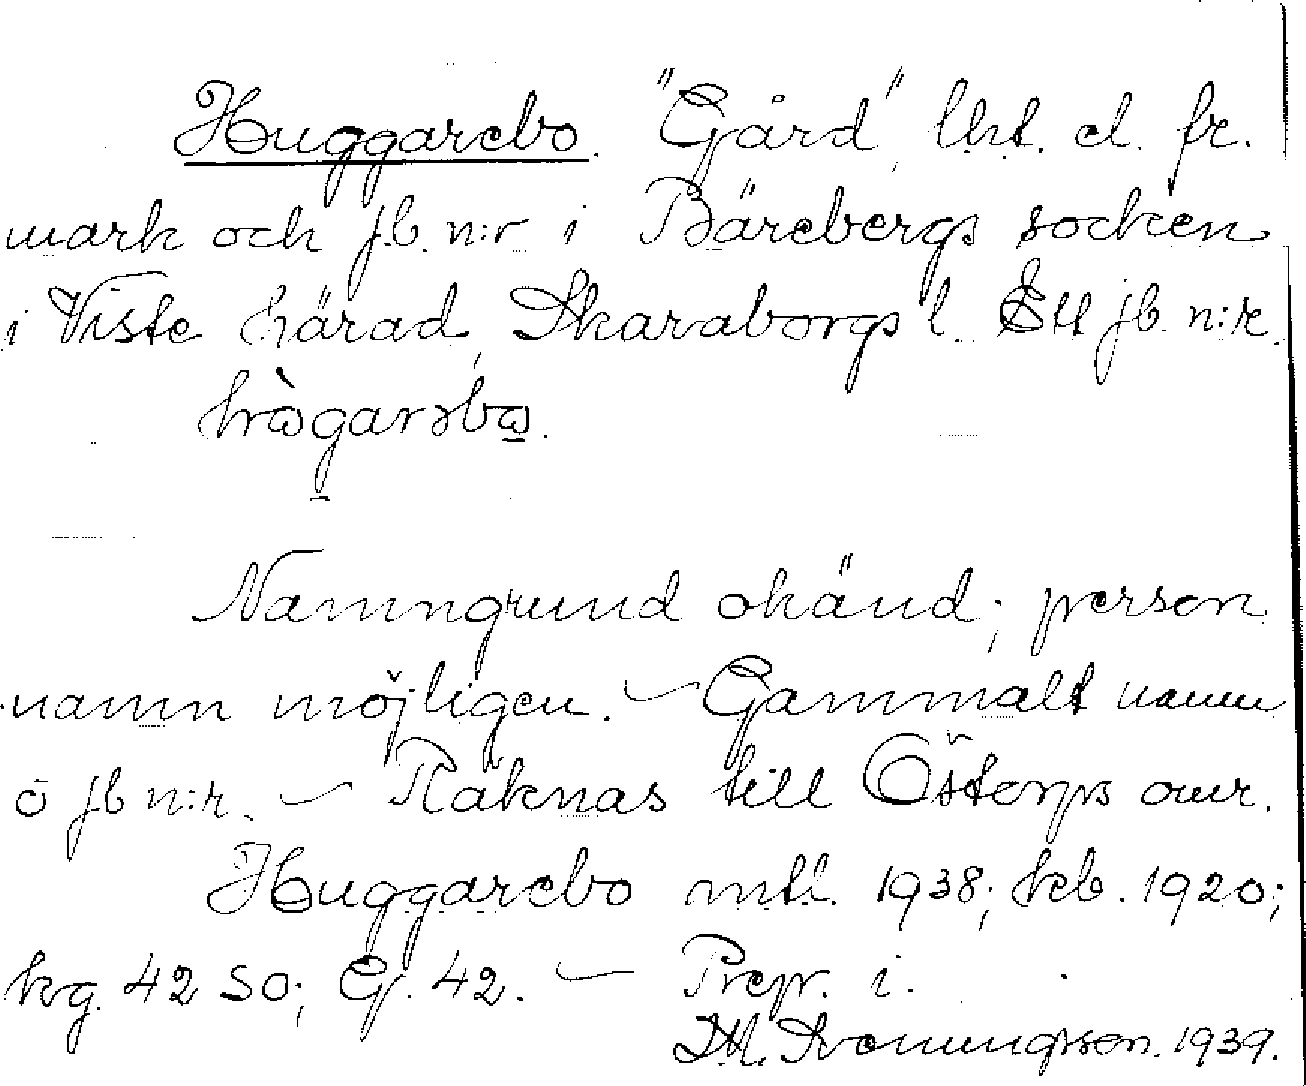 Huggarebo. "Gård", l.h.t. el. fr.
mark och jb. n:r i Bärebergs socken
i Viste härad, Skaraborgs l. Ett jb. n:r.
Namngrund okänd; person
namn möjligen. – Gammalt namn
o jb n:r. – Räknas till Östorps
Huggarebo mtl. 1938; 1920;
kg. 42 SO; Gf. 42. – Prepr. i.
1939.